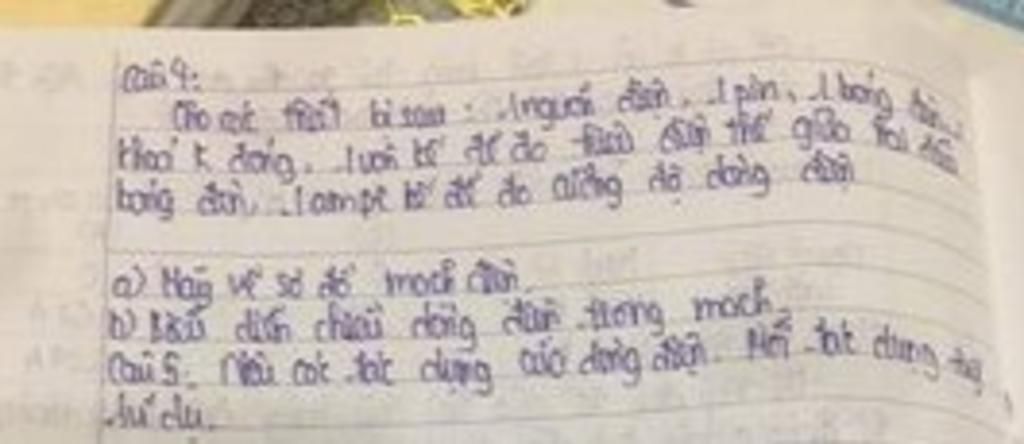 Câu 4:
Cho các thiết bị sau: 1 nguồn điện, 1 pin, 1 bóng đèn,
khoá K đóng, 1 vôn kế để đo hiệu điện thế giữa hai đầu
bóng đèn, 1 ampe kế để đo cường độ dòng điện
a) Hãy vẽ sơ đồ mạch điện.
b) Biểu diễn chiều dòng điện trong mạch.
Câu 5. Nêu các tác dụng của dòng điện. Mỗi tác dụng
ví dụ.